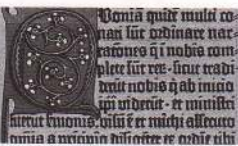 Quoniā quidē multi co-
nati sūt ordinare nar-
rationes q̄ i nobis com-
plete sūt reꝝ. sicut tradi-
derūt nobis q̄ ab inicio
ip̄i viderūt. et ministri
fuerūt sermonis. visū ē et michi assecuto
omnia a principio diligēter ex ordīe tibi